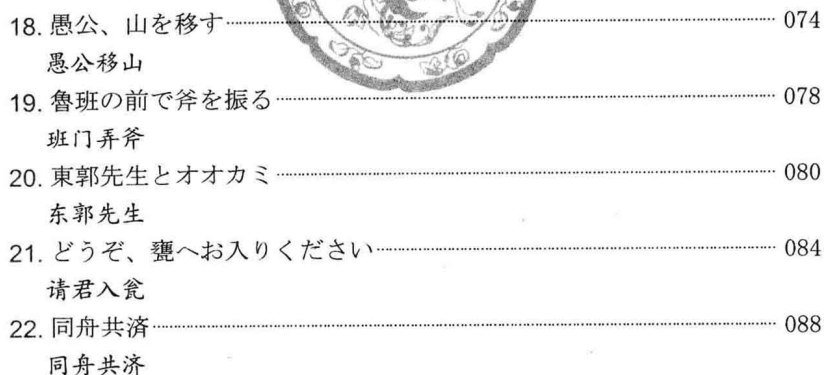 18. 愚公、山を移す 074
愚公移山
19. 魯班の前で斧を振る 078
班门弄斧
20. 東郭先生とオオカミ 080
东郭先生
21. どうぞ、甕へお入りください 084
请君入瓮
22. 同舟共済 088
同舟共济